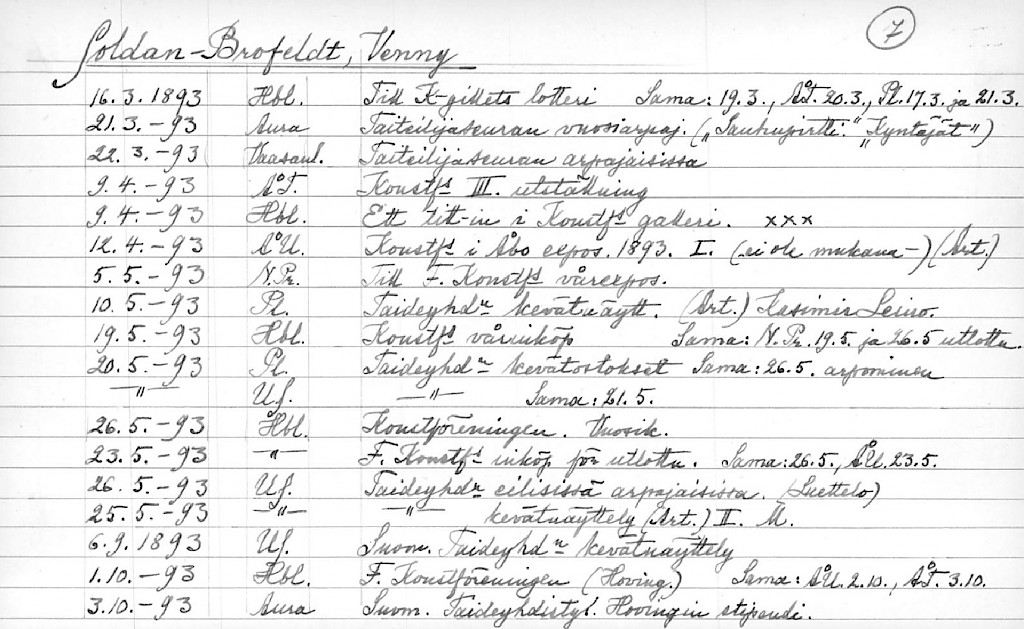 7
Soldan-Brofeldt, Venny
16.3.1893 Hbl. Till K-gillets lotteri Sama: 19.3., ÅT. 20.3., Pl. 17.3. ja 21.3.
21.3.-93 Aura Taiteilijaseuran vuosiarpaj. („Sauhupirtti." „Kyntäjät")
22.3.-93 Vaasaul. Taiteilijaseuran arpajaisissa
9.4.-93 ÅT. Konstfs III. utställning
9.4.-93 Hbl. Ett titt-in i Konstfs galleri. xxx
12.4.-93 ÅU. Konstfs i Åbo expos. 1893. I. (ei ole mukana-) (Art.)
5.5.-93 N.Pr. Till F. Konstfs vårexpos.
10.5.-93 Pl. Taideyhdn kevätnäytt. (Art.) Kasimir Leino.
19.5.-93 Hbl. Konstfs vårinköp Sama: N.Pr. 19.5. ja 26.5 utlottn.
20.5.-93 Pl. Taideyhdn kevätostokset Sama: 26.5. arpominen
—"— Uf. —"— Sama: 21.5.
26.5.-93 Hbl. Konstföreningen. Vuosik.
23.5.-93 —"— F. Konstfs inköp för utlottn. Sama: 26.5., ÅU. 23.5.
26.5.-93 Uf. Taideyhdn eilisissä arpajaisissa. (Luettelo)
25.5.-93 —"— —"— kevätnäyttely (Art.) II. M.
6.9.1893 Uf. Suom. Taideyhdn kevätnäyttely
1.10.-93 Hbl. F. Konstföreningen (Hoving.) Sama: ÅU. 2.10., ÅT. 3.10.
3.10.-93 Aura Suom. Taideyhdistys. Hovingin stipendi.